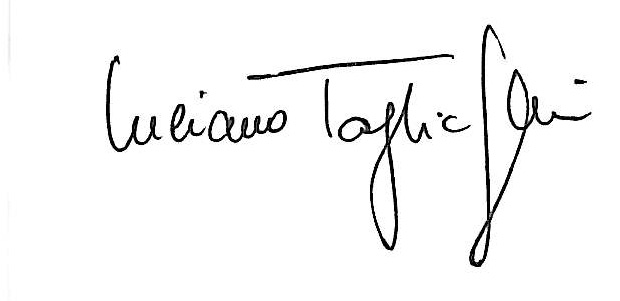 Luciano Tagliaferri